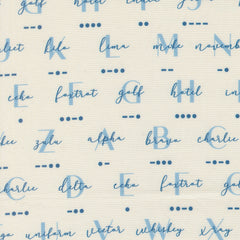 golf hotel
J K L M N
kilo lima mike november
E F G H
echo foxtrot golf hotel
Z A B C
zulu alpha bravo charlie
C D E F G
charlie delta echo foxtrot
U V W X
uniform victor whiskey xray